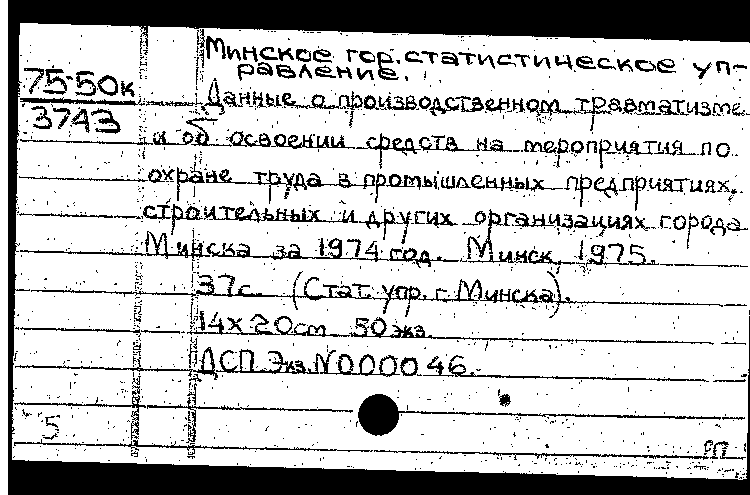 Минское гор. статистическое уп-
равление.
75-50к
3743
Данные о производственном травматизме
и об освоении средств на мероприятия по
охране труда в промышленных предприятиях,
строительных и других организациях города
Минска за 1974 год. Минск, 1975.
37с. (Стат. упр. г. Минска).
14х20см 50 экз.
ДСП. Экз. N000046.
5
РП